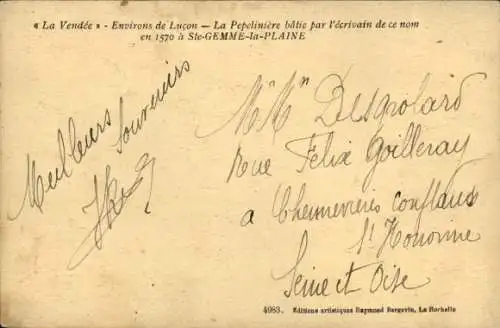 « La Vendée » - Environs de Luçon — La Popelinière bâtie par l'écrivain de ce nom
en 1570 à Ste-GEMME-la-PLAINE
Meilleurs
Souvenirs
Mr Mme Desgrolard
Rue Felix Goilleray
a Chennevieres conflans
St Honorine
Seine et Oise
4983. Editions artistiques Raymond Bergevin, La Rochelle